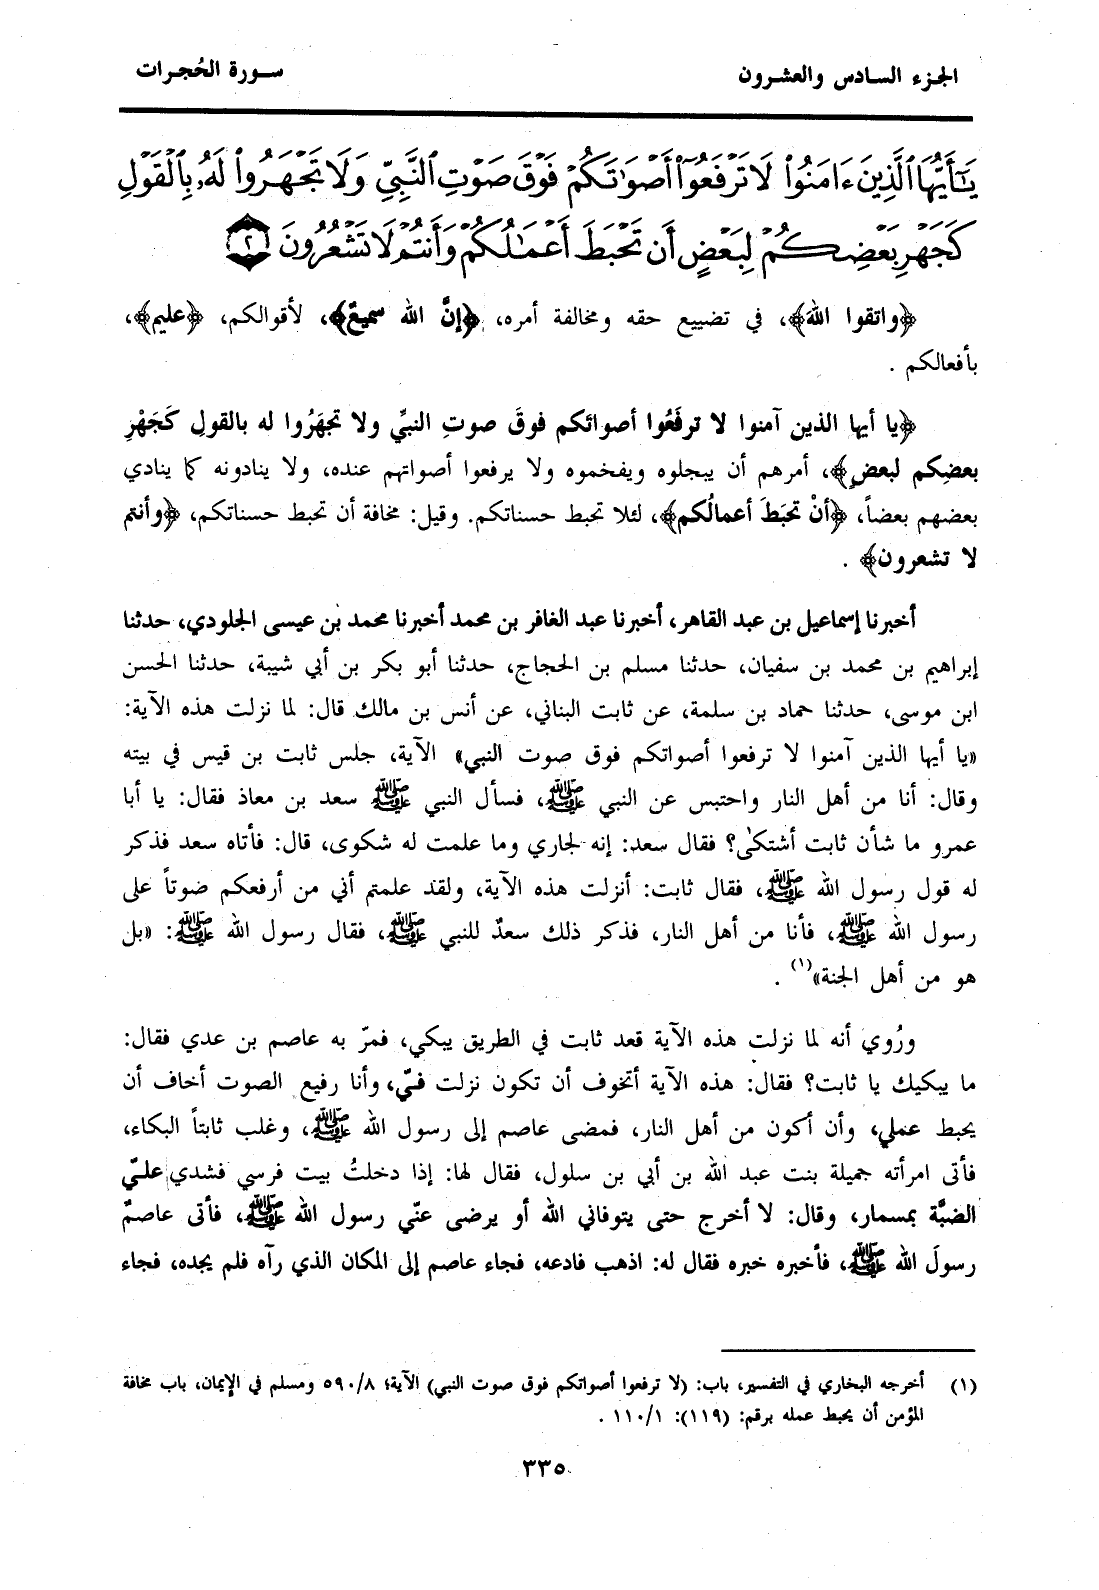 الجزء السادس والعشرون
سورة الحُجرات
يَـٰٓأَيُّهَا ٱلَّذِينَ ءَامَنُوا۟ لَا تَرْفَعُوٓا۟ أَصْوَٰتَكُمْ فَوْقَ صَوْتِ ٱلنَّبِيِّ وَلَا تَجْهَرُوا۟ لَهُۥ بِٱلْقَوْلِ
كَجَهْرِ بَعْضِكُمْ لِبَعْضٍ أَن تَحْبَطَ أَعْمَـٰلُكُمْ وَأَنتُمْ لَا تَشْعُرُونَ ٢
﴿واتقوا اللهَ﴾، في تضييع حقه ومخالفة أمره، ﴿إنَّ الله سميعٌ﴾، لأقوالكم، ﴿عليم﴾،
بأفعالكم .
﴿يا أيها الذين آمنوا لا ترفَعُوا أصوائكم فوقَ صوتِ النبيِّ ولا تجهَرُوا له بالقولِ كَجَهْرِ
بعضِكم لبعضٍ﴾، أمرهم أن يبجلوه ويفخموه ولا يرفعوا أصواتهم عنده، ولا ينادونه كما ينادي
بعضهم بعضاً، ﴿أنْ تحبَطَ أعمالُكم﴾، لئلا تحبط حسناتكم. وقيل: مخافة أن تحبط حسناتكم، ﴿وأنتم
لا تشعرون﴾ .
أخبرنا إسماعيل بن عبد القاهر، أخبرنا عبد الغافر بن محمد أخبرنا محمد بن عيسى الجلودي، حدثنا
إبراهيم بن محمد بن سفيان، حدثنا مسلم بن الحجاج، حدثنا أبو بكر بن أبي شيبة، حدثنا الحسن
ابن موسى، حدثنا حماد بن سلمة، عن ثابت البناني، عن أنس بن مالك قال: لما نزلت هذه الآية:
«يا أيها الذين آمنوا لا ترفعوا أصواتكم فوق صوت النبي» الآية، جلس ثابت بن قيس في بيته
وقال: أنا من أهل النار واحتبس عن النبي ﷺ، فسأل النبي ﷺ سعد بن معاذ فقال: يا أبا
عمرو ما شأن ثابت أشتكىٰ؟ فقال سعد: إنه لجاري وما علمت له شكوى، قال: فأتاه سعد فذكر
له قول رسول الله ﷺ، فقال ثابت: أنزلت هذه الآية، ولقد علمتم أني من أرفعكم ضوتاً على
رسول الله ﷺ، فأنا من أهل النار، فذكر ذلك سعدٌ للنبي ﷺ، فقال رسول الله ﷺ: «بل
هو من أهل الجنة»(١) .
ورُوي أنه لما نزلت هذه الآية قعد ثابت في الطريق يبكي، فمرّ به عاصم بن عدي فقال:
ما يبكيك يا ثابت؟ فقال: هذه الآية أتخوف أن تكون نزلت فيّ، وأنا رفيع الصوت أخاف أن
يحبط عملي، وأن أكون من أهل النار، فمضى عاصم إلى رسول الله ﷺ، وغلب ثابتاً البكاء،
فأتى امرأته جميلة بنت عبد الله بن أبي بن سلول، فقال لها: إذا دخلتُ بيت فرسي فشدي عليّ
الضبَّة بمسمار، وقال: لا أخرج حتى يتوفاني الله أو يرضى عنّي رسول الله ﷺ، فأتى عاصمٌ
رسولَ الله ﷺ، فأخبره خبره فقال له: اذهب فادعه، فجاء عاصم إلى المكان الذي رآه فلم يجده، فجاء
(١) أخرجه البخاري في التفسير، باب: (لا ترفعوا أصواتكم فوق صوت النبي) الآية؛ ٥٩٠/٨ ومسلم في الإيمان، باب مخافة
المؤمن أن يحبط عمله برقم: (١١٩): ١١٠/١ .
٣٣٥